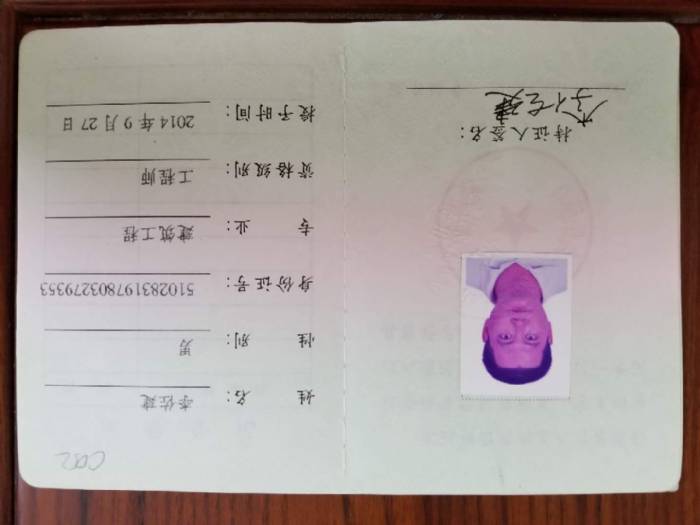 持证人签名：
李佐建
姓 名： 李佐建
性 别： 男
身份证号： 510283197803279353
专 业： 建筑工程
资格级别： 工程师
授予时间： 2014年9月27日